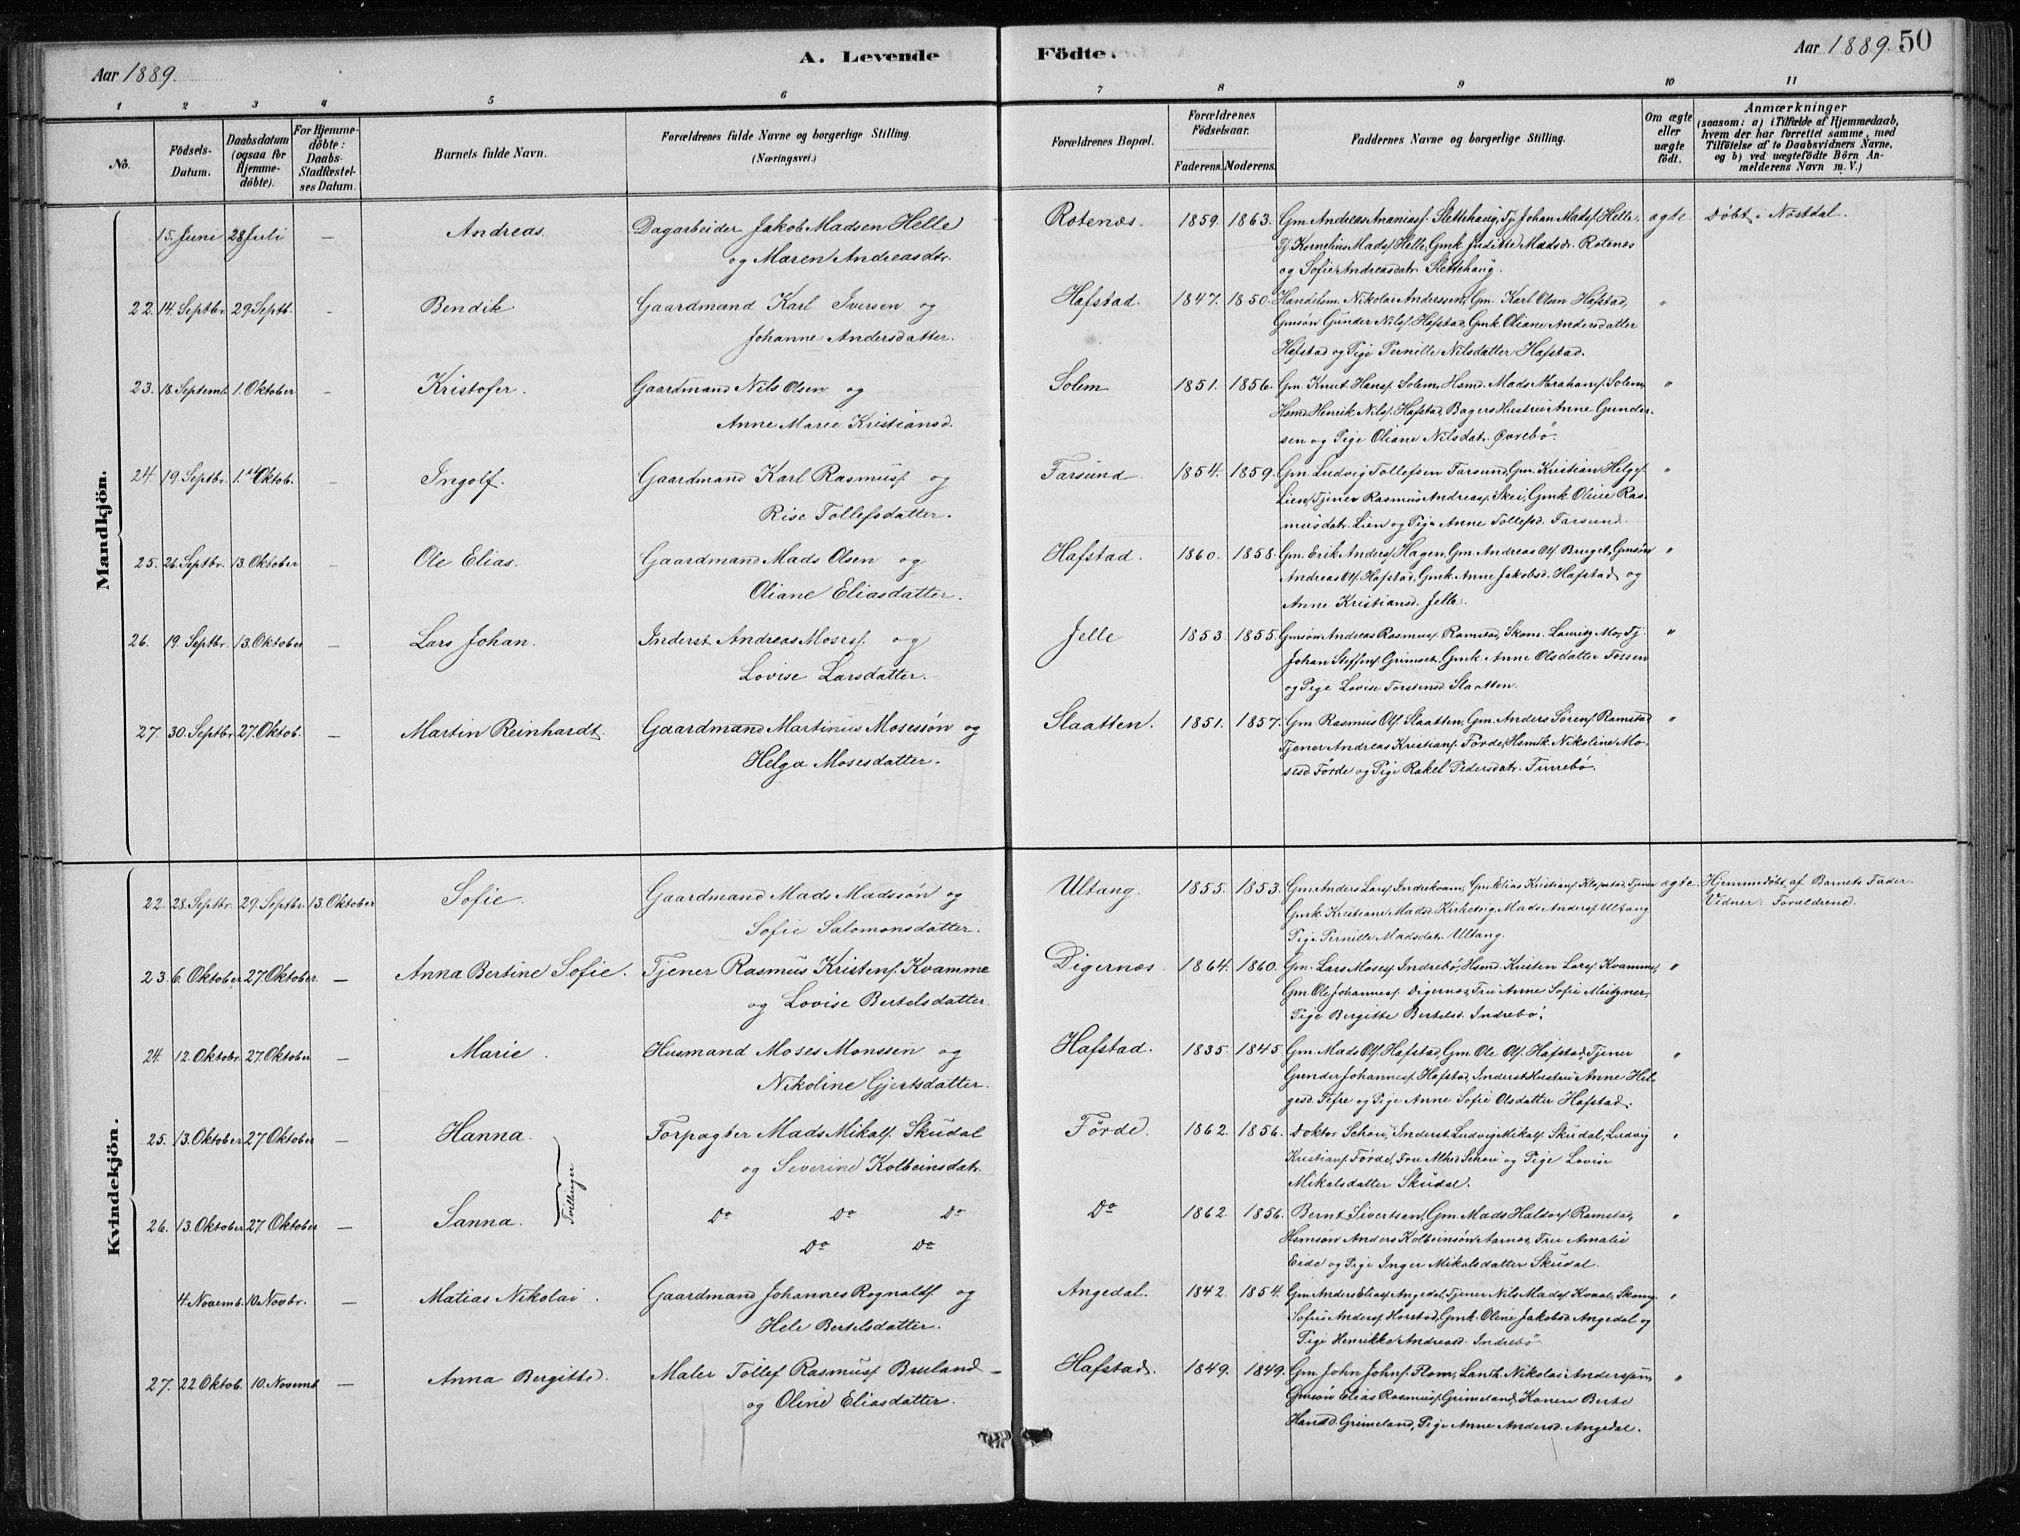 Aar 1889.
A. Levende
Födte.
Aar 1889. 50
1 2 3 4 5 6 7 8 9 10 11
No.
Födsels-Datum.
Daabsdatum (ogsaa for Hjemmedöbte).
For Hjemmedöbte: Daabs-Stadfæstelses Datum.
Barnets fulde Navn.
Forældrenes fulde Navne og borgerlige Stilling.
(Næringsvei.)
Forældrenes Bopæl.
Forældrenes Födselsaar.
Faderens. Moderens.
Faddernes Navne og borgerlige Stilling.
Om ægte eller uægte födt.
Anmærkninger
(saasom: a) i Tilfælde af Hjemmedaab,
hvem der har forrettet samme, med
Tilföielse af to Daabsvidners Navne,
og b) ved uægtefödte Börn An-
melderens Navn m. V.)
Mandkjön.
15. Juni 28 Juli — Andreas. Dagarbeider Jakob Madsen Helle Rotenæs. 1859. 1863. Gm. Andreas Ananiasf. Slettehaug, Tj. Johan Madsf. Helle, ægte Döbt i Nöstdal.
og Maren Andreasdtr. Tj. Kornelius Madsf. Helle, Gmk. Juditte Madsdr. Rotenes
og Sofie Andreasdatr. Slettehaug.
22. 14. Septbr. 29. Septb. - Bendik Gaardmand Karl Iversen og Hafstad. 1847. 1850. Handelsm. Nikolai Anderssen, Gm. Karl Olsen Hafstad, "
Johanne Andersdatter. Gmsön Gunder Nilsf. Hafstad, Gmk. Oliane Andersdatter
Hafstad og Pige Pernille Nilsdatter Hafstad.
23. 18. Septemb. 1. Oktober - Kristofer. Gaardmand Nils Olsen og Solem 1851. 1856. Gm. Knut Hansf. Solem, Hsmd. Mads Abrahamf. Solem, "
Anne Marie Kristiansd. Hsmd. Henrik Nilsf. Hafstad, Bagers Hustru Anne Gunder-
sen og Pige Oliane Nilsdatr. Övrebö.
24. 19. Septbr. 1. Oktob. - Ingolf. Gaardmand Karl Rasmusf. og Farsund. 1854. 1859. Gm. Ludvig Tollefsen Farsund, Gm. Kristian Helgef. "
Rise Tollefsdatter. Lien, Tjener Rasmus Andreasf. Skei, Gmk. Oline Ras-
musdatr. Lien og Pige Anne Tollefsd. Farsund.
25. 26. Septbr. 13. Oktober - Ole Elias. Gaardmand Mads Olsen og Hafstad. 1860. 1858. Gm. Erik Andersf. Hagen, Gm. Andreas Olsf. Bruget, Gmsön "
Oliane Eliasdatter. Andreas Olsf. Hafstad, Gmk. Anne Jakobsd. Hafstad og
Anne Kristiansd. Jelle.
26. 19. Septbr. 13. Oktober — Lars Johan. Inderst Andreas Mosesf. og Jelle 1853. 1855. Gmsön Andreas Rasmusf. Ramstad, Skom. Lauritz Mo, Tj. "
Lovise Larsdatter. Johan Steffensf. Grimset, Gmk. Anne Olsdatter Fossen
og Pige Lovise Torstensd. Slaatten.
27. 30. Septbr. 27. Oktob. — Martin Reinhardt. Gaardmand Martinus Mosessön og Slaatten. 1851. 1857. Gm. Rasmus Olsf. Slaatten, Gm. Anders Sörensf. Ramstad "
Helga Mosesdatter. Tjener Andreas Kristiansf. Förde, Hsmk. Nikoline Mo-
sesd. Förde og Pige Rakel Pedersdatr. Furebö.
Kvindekjön.
22. 28. Septbr. 29. Septbr. 13. Oktober Sofie. Gaardmand Mads Madssön og Ultang. 1855. 1853. Gm. Anders Larsf. Indrekvam, Gm. Elias Kristiansf. Klopstad, Tjener ægte. Hjemmedöbt af Barnets Fader.
Sofie Salomonsdatter. Gmk. Kristiane Madsd. Kirketeig, Mads Andersf. Ultang Vidner: Forældrene.
Pige Pernille Madsdatr. Ultang.
23. 6. Oktober 27. Oktober — Anna Bertine Sofie. Tjener Rasmus Kristensf. Kvamme Digernæs. 1864. 1860. Gm. Lars Mosesf. Indrebö, Hsmd. Kristen Larsf. Kvamme, "
og Lovise Bertelsdatter. Gm. Ole Johannesf. Digernæs, Fru Anne Sofie Meitzner,
Pige Bergitte Bertelsd. Indrebö.
24. 12. Oktobr. 27. Oktober — Marie. Husmand Moses Monssen og Hafstad. 1835. 1845. Gm. Mads Olsf. Hafstad, Gm. Ole Olsf. Hafstad, Tjener "
Nikoline Gjertsdatter. Gunder Johannesf. Hafstad, Inderst Hustru Anne Hel-
gesd. Tefre og Pige Anne Sofie Olsdatter Hafstad.
25. 13. Oktober 27. Oktober — Hanna. Forpagter Mads Mikalsf. Skudal Förde. 1862. 1856. Doktor Schou, Inderst Ludvig Mikalsf. Skudal, Ludvig "
Tvillinger og Severine Kolbeinsdatr. Kristiansf. Förde, Fru Alhed Schou og Pige Lovise
Mikalsdatter Skudal.
26. 13. Oktober 27. Oktober — Sanna. Do Do Do Do 1862. 1856. Bernt Sivertsen, Gm. Mads Haldorsf. Ramstad, "
Do Do Hsmsön Anders Kolbeinsön Aarnes, Fru Amalie
Eide og Pige Inger Mikalsdatter Skudal.
4. Novemb. 10. Novbr. — Matias Nikolai. Gaardmand Johannes Rognaldsf. og Angedal. 1842. 1854. Gm. Anders Eliasf. Angedal, Tjener Nils Madsf. Kvaal, "
Hele Bertelsdatter. Andersf. Horstad, Gmk. Oline Jakobsd. Angedal og
Pige Henrikke Andreasd. Indrebö
27. 22 Oktob. 10. Novemb. — Anna Bergitte. Maler Tollef Rasmusf. Bruland — Hafstad. 1849. 1849. Gm. John Johnsf. Flom, Lanth. Nikolai Anderssen, "
og Oline Eliasdatter. Gmsön Elias Rasmusf. Grimeland, Konen Berte
Hansd. Grimeland, Pige Anne Andersd. Angedal.